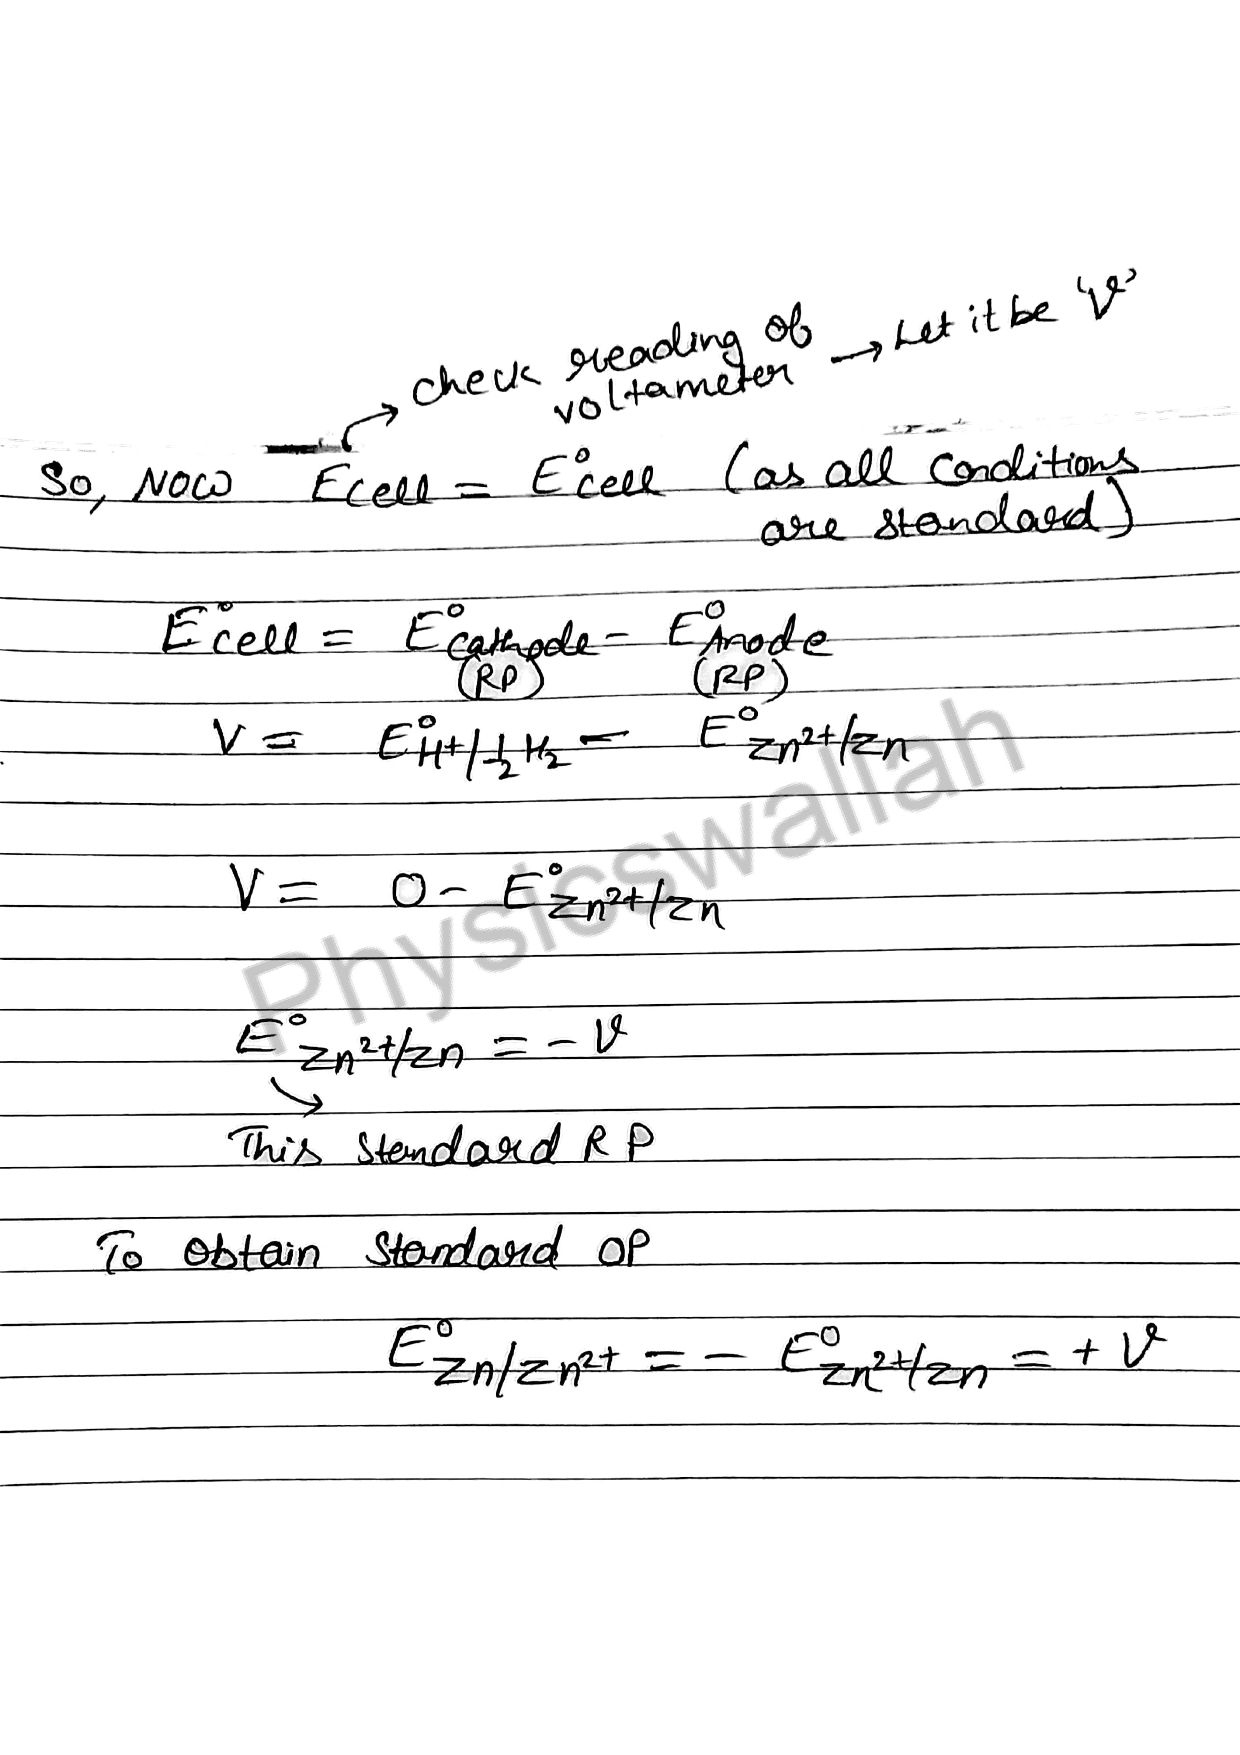 check reading of → Let it be 'V'
voltameter
So, Now Ecell = E°cell (as all conditions
are standard)
E°cell = E°Cathode - E°Anode
(RP) (RP)
V = E°H+/½H2 - E°Zn2+/Zn
V = 0 - E°Zn2+/Zn
E°Zn2+/Zn = - V
This standard RP
To obtain standard OP
E°Zn/Zn2+ = - E°Zn2+/Zn = + V
Physicswallah